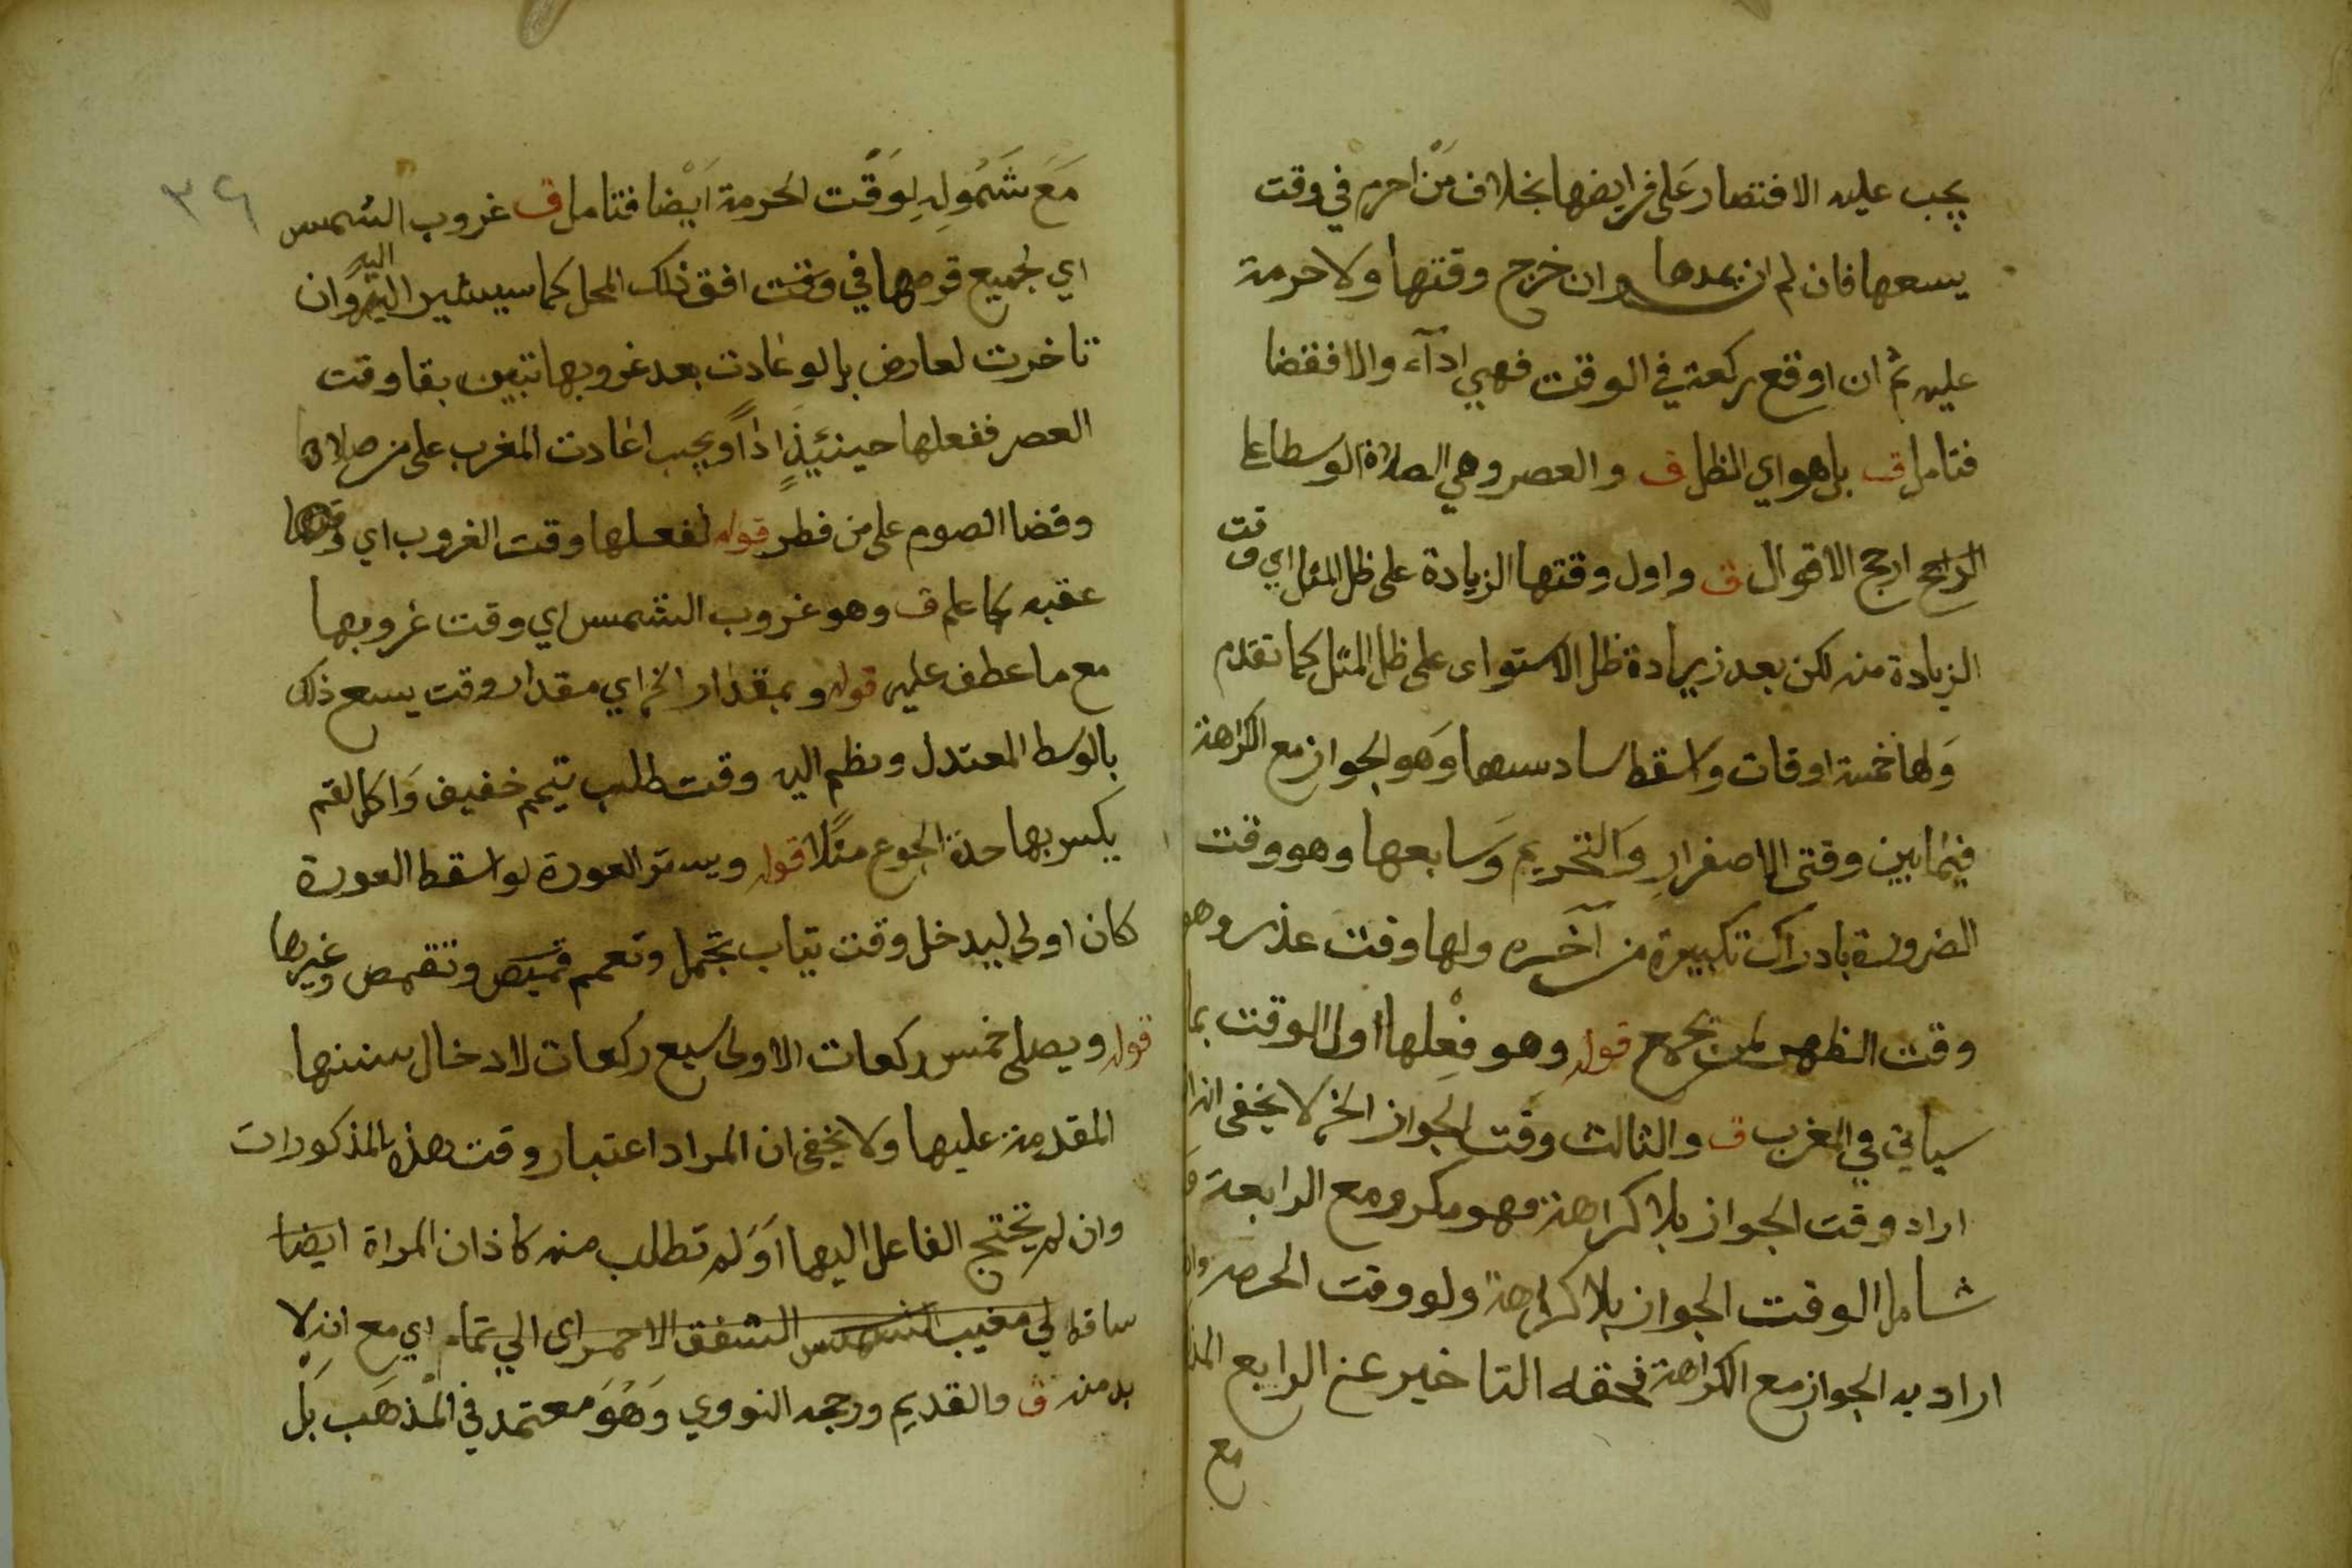 يجب عليه الاقتصار على فرايضها بخلاف من احرم في وقت
يسعها فان لم ان يمدها وان خرج وقتها ولا حرمة
عليه ثم ان اوقع ركعة في الوقت فهي ادآء والا فقضا
فتامل ق بل هو اي الظل ق والعصر وهي الصلاة الوسطا علي
الراجح ارجح الاقوال ق واول وقتها الزيادة على ظل المثل اي وقت
الزيادة منه لكن بعد زيادة ظل الاستواى على ظل المثل كما تقدم
وَلها خمسة اوقات واسقط سادسها وَهو الجواز مع الكراهة
فيما بين وقتى الاصفرارِ وَالتحريم وَسابعها وهو وقت
الضرورة بادراك تكبيرة من آخره ولها وقت عذر وهو
وقت الظهر لمن يجمع قوله وهو فِعْلها اول الوقت بما
سياتي في المغرب ق والثالث وقت الجواز الخ لا يخفى انه
اراد وقت الجواز بلا كراهة فهو مكرر مع الرابعة
شامل الوقت الجواز بلا كراهة ولو وقت الحرمة
اراد به الجواز مع الكراهة فحقه التاخير عن الرابع
مع
٣٦
مَعَ شَمُولِهِ لِوَقْت الحرمة اَيْضا فتامل ق غروب الشمس
اي لجميع قرصها في وقت افق ذلك المحل كما سيشير اليه وان
تاخرت لعارض بل لو عادت بعد غروبها تبين بقا وقت
العصر ففعلها حينئيذٍ اداً ويجب اعادت المغرب على من صلاها
وقضا الصوم على من فطر قوله لفعلها وقت الغروب اي
عقبه كما علم ق وهو غروب الشمس اي وقت غروبها
مع ما عطف عليه قوله وبمقدار الخ اي مقدار وقت يسع ذلك
بالوسط المعتدل ونظم اليه وقت طلب تيمم خفيف وَاكل لقم
يكسر بها حدة الجوع مثلًا قوله ويستر العورة لو اسقط العورة
كان اولى ليدخل وقت ثياب تجمل وتعمم قميص وتقمص وغيرها
قوله ويصلى خمس ركعات الاولى سبع ركعات لادخال سننها
المقدمة عليها ولا يخفى ان المراد اعتبار وقت هذه المذكورات
وان لم يحتج الفاعل اليها اَوَ لم تطلب منه كاذان المراة ايضا
ساقط لي مغيب الشمس الشفق الاحمر اى الي تمام اي مع انه لا
بد منه ق والقديم ورجحه النووي وَهُوَ معتمد في الْمذهَب بَلْ